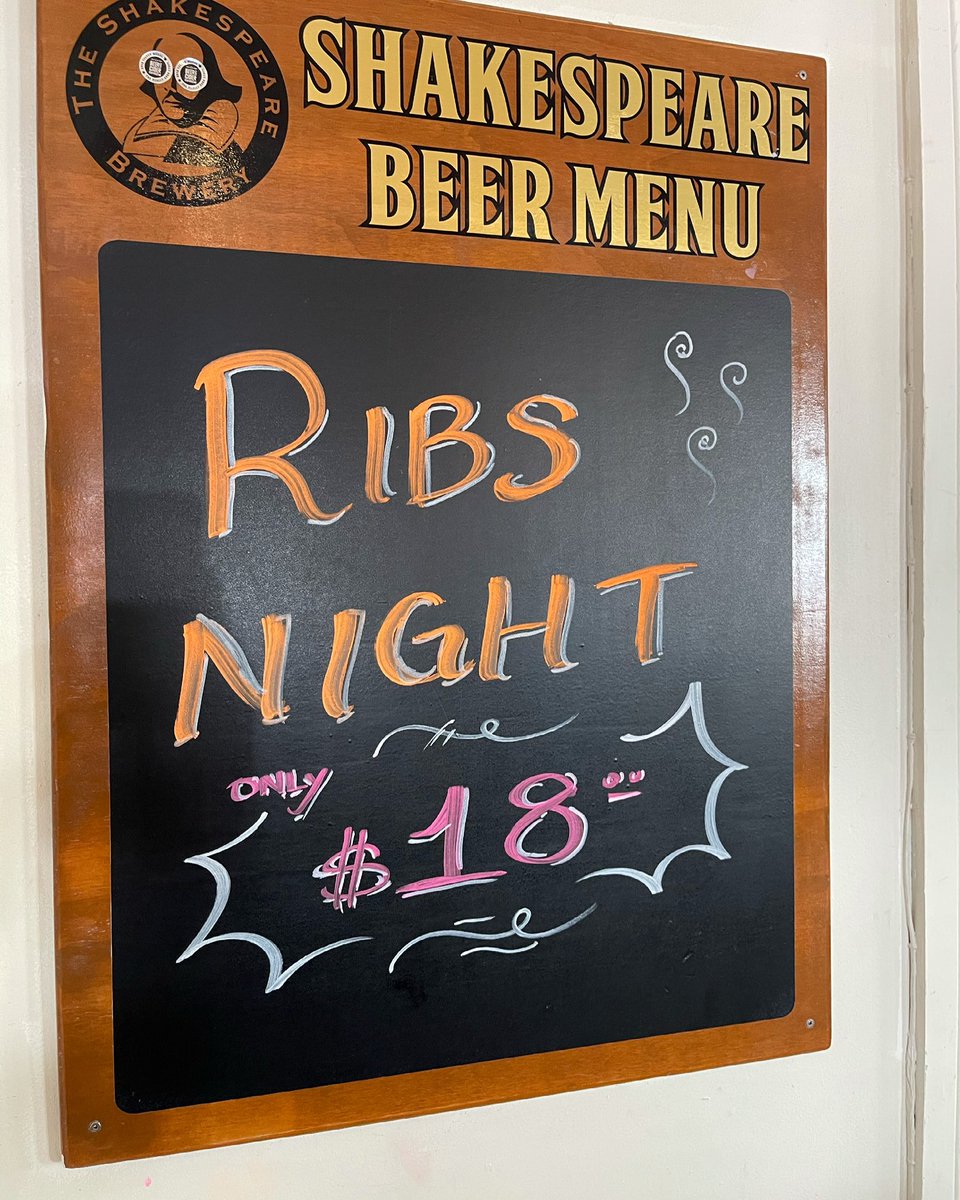 THE SHAKESPEARE
BREWERY
SHAKESPEARE
BEER MENU
RIBS
NIGHT
ONLY
$18.00